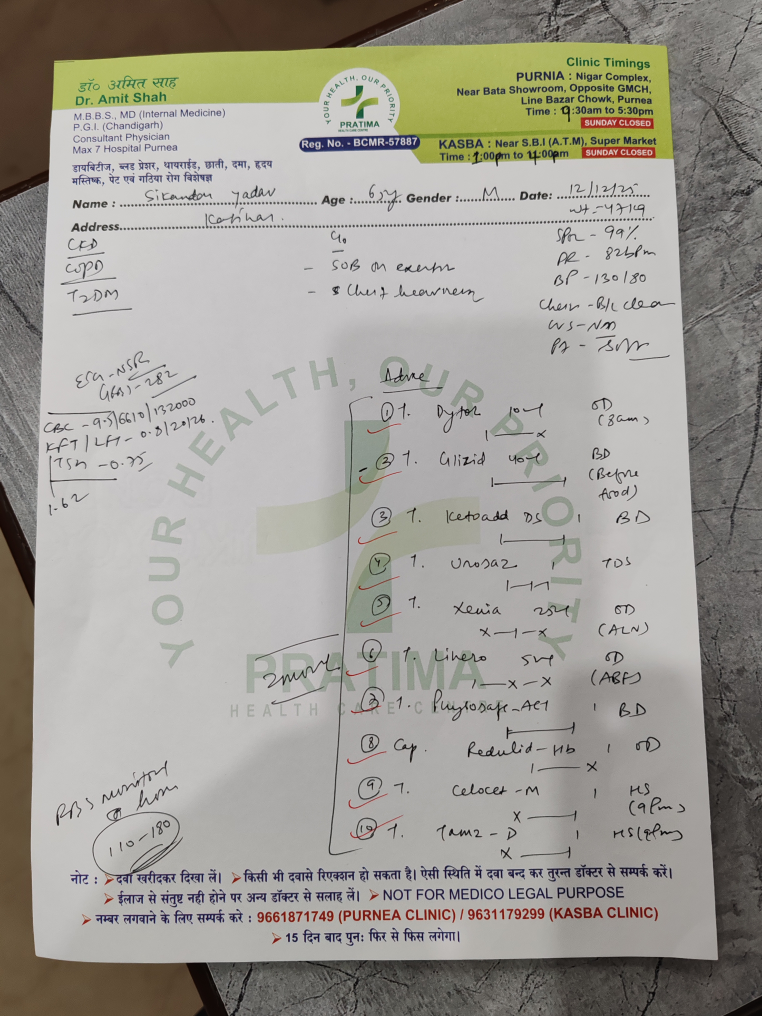 डॉ० अमित साह
Dr. Amit Shah
M.B.B.S., MD (Internal Medicine)
P.G.I. (Chandigarh)
Consultant Physician
Max 7 Hospital Purnea
डायबिटीज, ब्लड प्रेशर, थायराईड, छाती, दमा, हृदय
मस्तिष्क, पेट एवं गठिया रोग विशेषज्ञ
YOUR HEALTH, OUR PRIORITY
PRATIMA
HEALTH CARE CENTRE
Reg. No. - BCMR-57887
Clinic Timings
PURNIA : Nigar Complex,
Near Bata Showroom, Opposite GMCH,
Line Bazar Chowk, Purnea
Time : 9:30am to 5:30pm
SUNDAY CLOSED
KASBA : Near S.B.I (A.T.M), Super Market
Time : 1:00pm to 4:00pm SUNDAY CLOSED
Name : Sikandar Yadav Age : 65y Gender : M Date: 12/12/25
Address Katihar wt - 47kg
CKD
COPD
T2DM
- SOB on exertion
- Chest heaviness
SPO2 - 99%
PR - 82bpm
BP - 130/80
Chest - B/L clear
P/A - Soft
ECG - NSR
CBC - 9.5/6610/132000
KFT/LFT -
TSH -
1.62
Advice
① T. Dytor 10mg OD
(8am)
② T. Glizid 40mg BD
(Before food)
③ T. Ketoadd DS 1 BD
④ T. 1 TDS
⑤ T. Xenia 25mg OD
(ALN)
⑥ T. Linero 5mg OD
(ABF)
⑦ T. 1 BD
⑧ Cap. Redulid-Hb 1 OD
⑨ T. Celocet-M 1 HS
(9pm)
⑩ T. Tamz-D 1 HS (9pm)
YOUR HEALTH, OUR PRIORITY
PRATIMA
HEALTH CARE CENTRE
RBS monitor
@ home
110-180
नोट : दवा खरीदकर दिखा लें। किसी भी दवासे रिएक्शन हो सकता है। ऐसी स्थिति में दवा बन्द कर तुरन्त डॉक्टर से सम्पर्क करें।
ईलाज से संतुष्ट नही होने पर अन्य डॉक्टर से सलाह लें। NOT FOR MEDICO LEGAL PURPOSE
नम्बर लगवाने के लिए सम्पर्क करे : 9661871749 (PURNEA CLINIC) / 9631179299 (KASBA CLINIC)
15 दिन बाद पुन: फिर से फिस लगेगा।